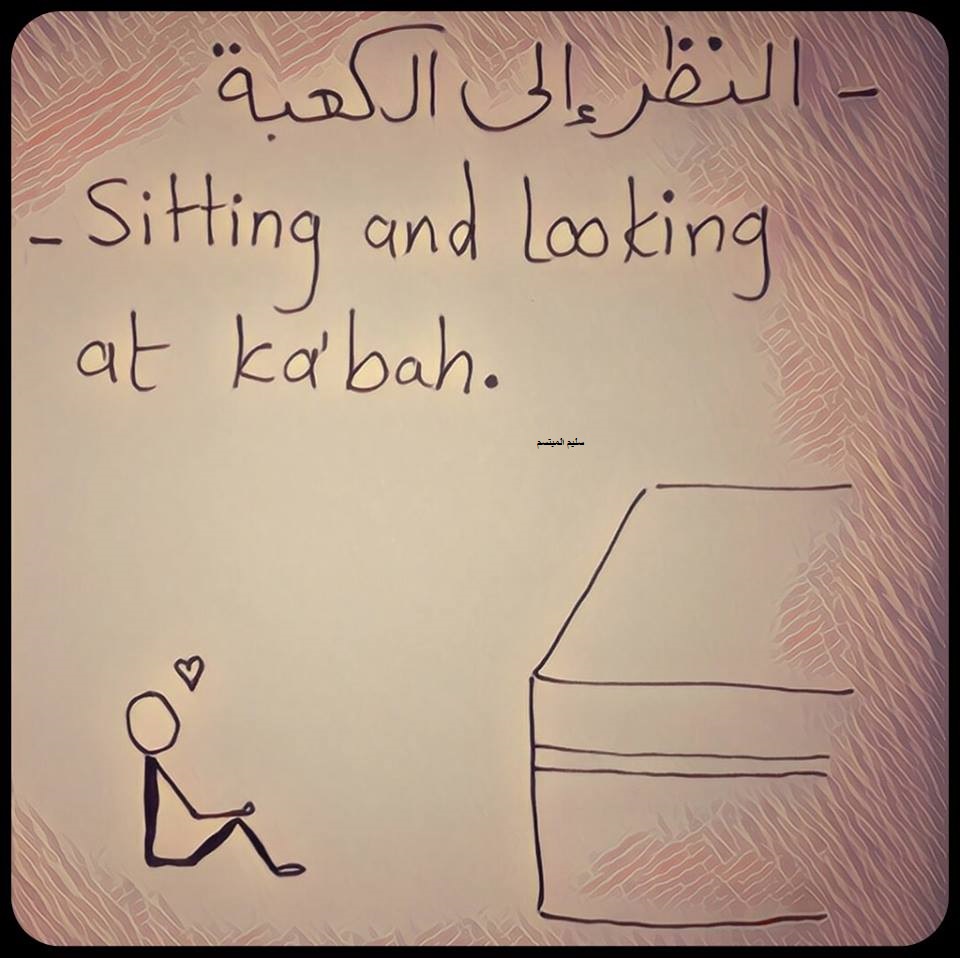 - النظر إلى الكعبة
- Sitting and looking
at ka'bah.
سليم المبتسم